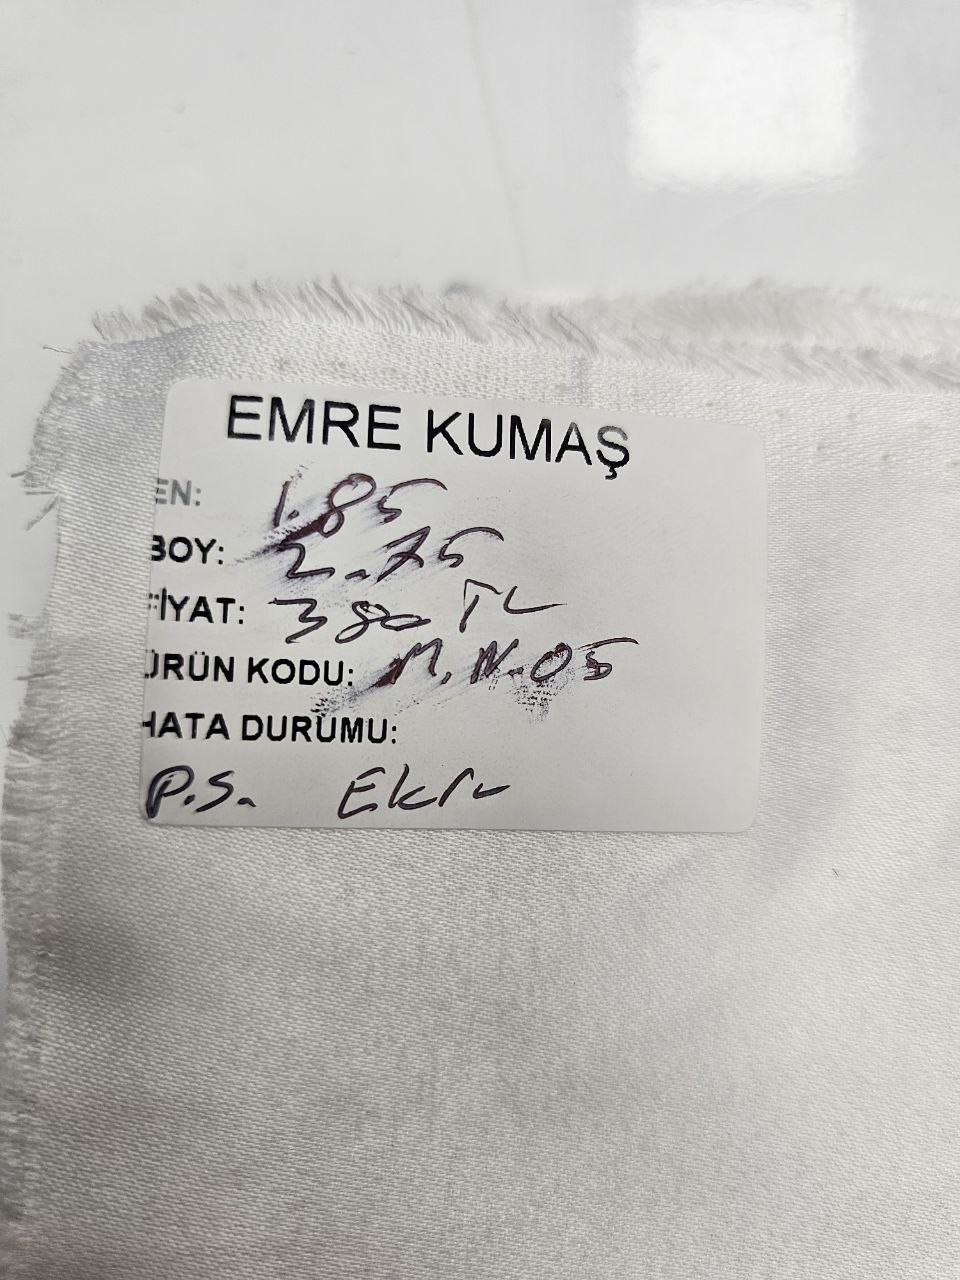 EMRE KUMAŞ
EN: 1.85
BOY: 2.75
FİYAT: 380 TL
ÜRÜN KODU: M.N.05
HATA DURUMU:
P.S. Ekru